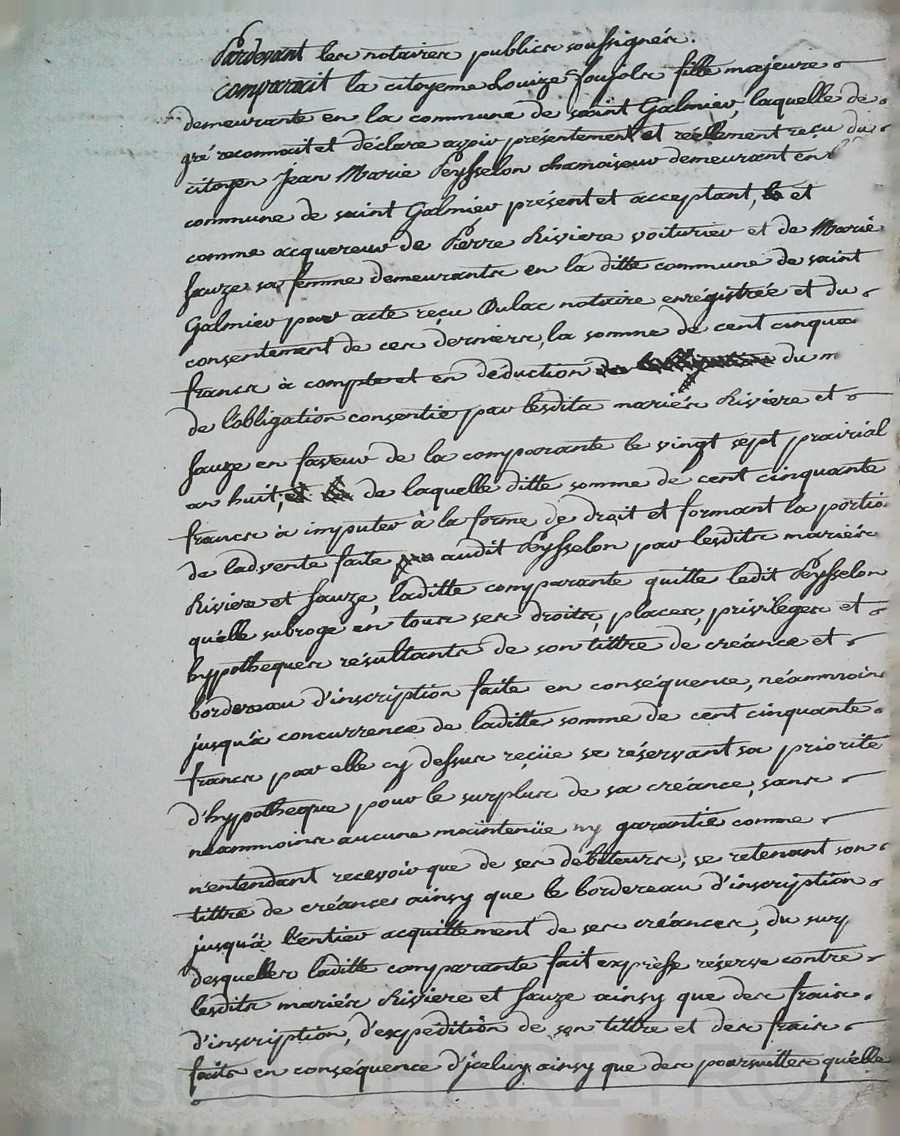 Pardevant les notaires publics soussignés.
comparait la citoyenne Louize Soujols fille majeure
demeurante en la commune de saint Galmier, laquelle de
gré reconnoit et déclare avoir présentement et réellement reçu du
citoyen Jean Marie Peysselon chamoiseur demeurant en
commune de saint Galmier présent et acceptant, et
comme acquereur de Pierre Riviere voiturier et de Marie
Sauze sa femme demeurants en la ditte commune de saint
Galmier par acte reçu Dulac notaire enrégistrée et du
consentement de ces derniers, la somme de cent cinqua
francs à compte et en déduction du m
de l'obligation consentie par lesdits mariés Riviere et
Sauze en faveur de la comparante le vingt sept prairial
an huit, de laquelle ditte somme de cent cinquante
francs à imputer à la forme de droit et formant la portio
de ladvente faite audit Peysselon par lesdits mariés
Riviere et Sauze, laditte comparante quitte ledit Peysselon
quelle subroge en tous ses droits, places, privileges et
hypotheques résultants de son tittre de créance et
bordereau d'inscription faite en conséquence, néammoins
jusqu'à concurrence de laditte somme de cent cinquante
francs par elle cy dessus reçüe se réservant sa priorité
d'hypotheque pour le surplus de sa créance, sans
néammoins aucune maintenüe ny garantie comme
n'entendant recevoir que de ses débiteurs, se retenant son
tittre de créance ainsy que le bordereau d'inscription
jusqu'à l'entier acquittement de ses créances, du surp
desquelles laditte comparante fait expresse réserve contre
lesdits mariés Riviere et Sauze ainsy que des frais
d'inscription, d'expédition de son tittre et des frais
faits en conséquence d'jceluy ainsy que des poursuittes quelle